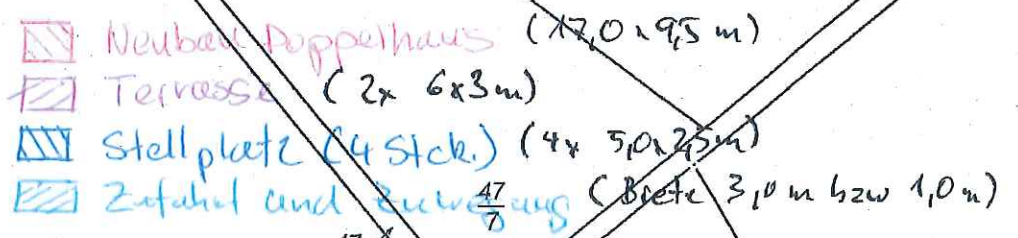 Neubau Doppelhaus (17,0 x 9,5 m)
Terrasse (2x 6x3m)
Stellplatz (4 Stck.) (4x 5,0x2,5m)
Zufahrt und Zuwegung (Breite 3,0 m bzw 1,0 m)
47
7